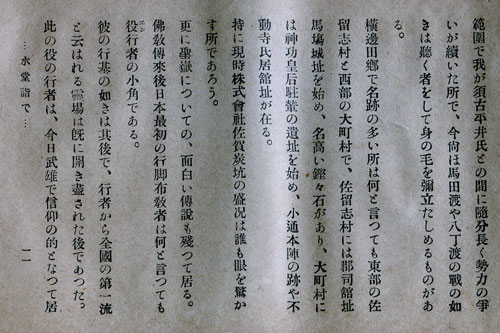 範圍で我が須古平井氏との間に隨分長く勢力の爭
いが續いた所で、今尙ほ馬田渡や八丁渡の戰の如
きは聽く者をして身の毛を彌立たしめるものがあ
る。
橫邊田鄉で名跡の多い所は何と言つても東部の佐
留志村と西部の大町村で、佐留志村には郡司館址
馬塲城址を始め、名高い鏗々石があり、大町村に
は神功皇后駐輦の遺址を始め、小通本陣の跡や不
動寺氏居館址が在る。
特に現時株式會社佐賀炭坑の盛况は誰も眼を驚か
す所であろう。
更に聖嶽についての、面白い傳說も殘つて居る。
佛敎傳來後日本最初の行脚布敎者は何と言つても
役行者の小角である。
エン
彼の行基の如きは其後で、行者から全國の第一流
と云はれる靈塲は旣に開き盡された後であつた。
此の役の行者は、今日武雄で信仰の的となつて居
…水堂詣で…
一一